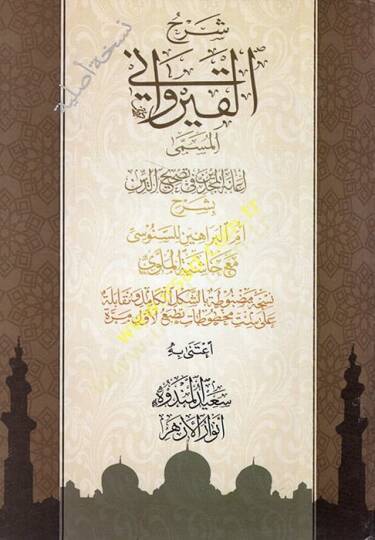 شرح
القيرواني
المسمى
إعانة المجدين في تصحيح الدين
بشرح
أم البراهين للسنوسي
مع حاشية الملوي
نسخة مضبوطة بالشكل الكامل ومقابلة
على ست مخطوطات يطبع لأول مرة
اعتنى به
سعيد المندوه
أنوار الأزهر
نسخة أصلية